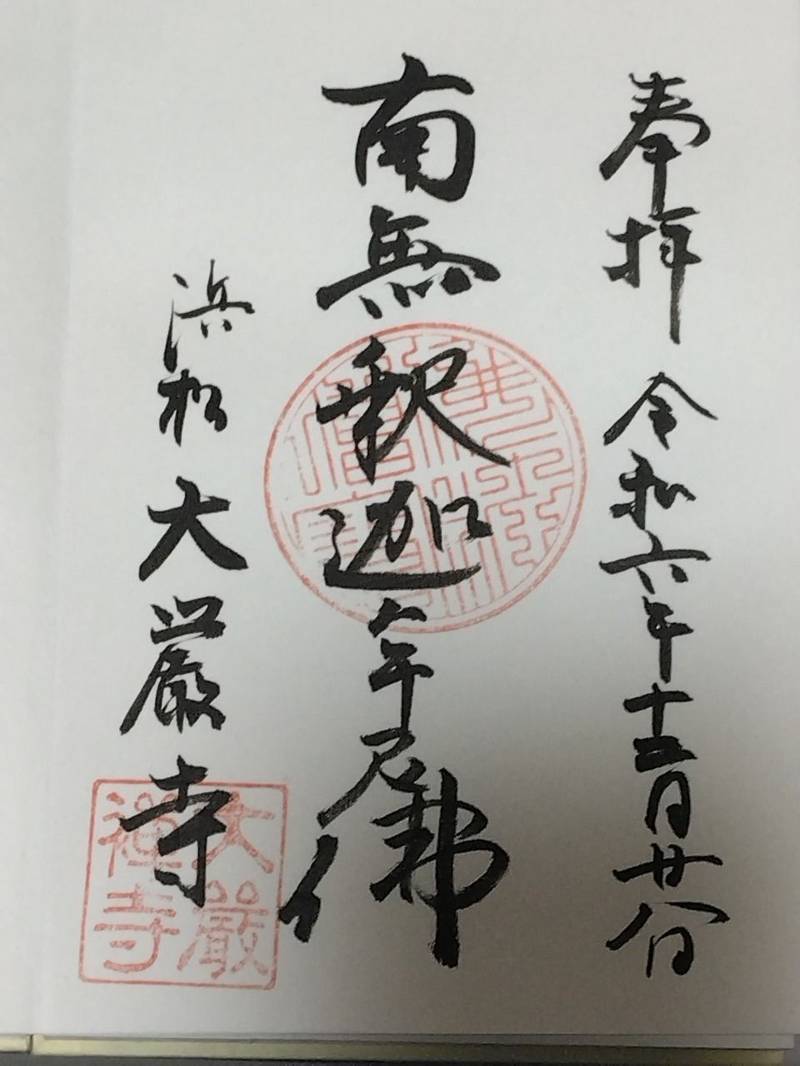 奉拝 令和六年十二月廿八日
南無釈迦牟尼佛
浜松 大巌寺
大巌
禅寺